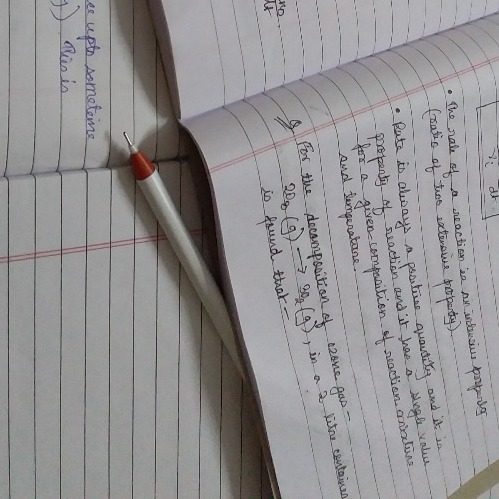 • The rate of a reaction is an intensive property
(ratio of two extensive property)
• Rate is always a positive quantity and it is
property of reaction and it has a single value
for a given composition of reaction mixture
and temperature.
Q For the decomposition of ozone gas-
2O3 (g) → 3O2 (g), in a 2 litre container
is found that-
upto sometime
This is